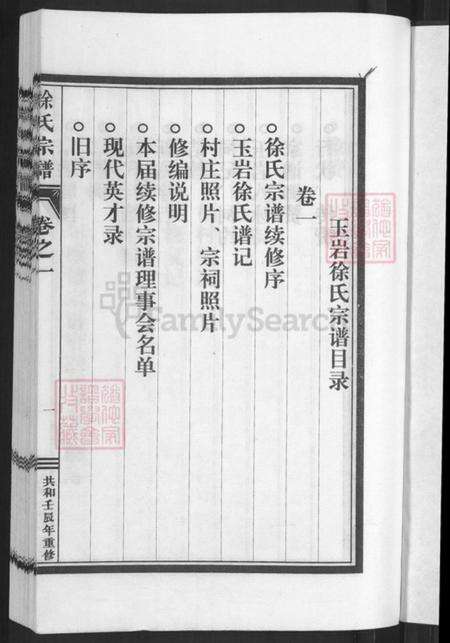 玉岩徐氏宗谱目录
卷一
○徐氏宗谱续修序
○玉岩徐氏谱记
○村庄照片、宗祠照片
○修编说明
○本届续修宗谱理事会名单
○现代英才录
○旧序
徐氏宗谱
卷之一
一
共和壬辰年重修
FamilySearch